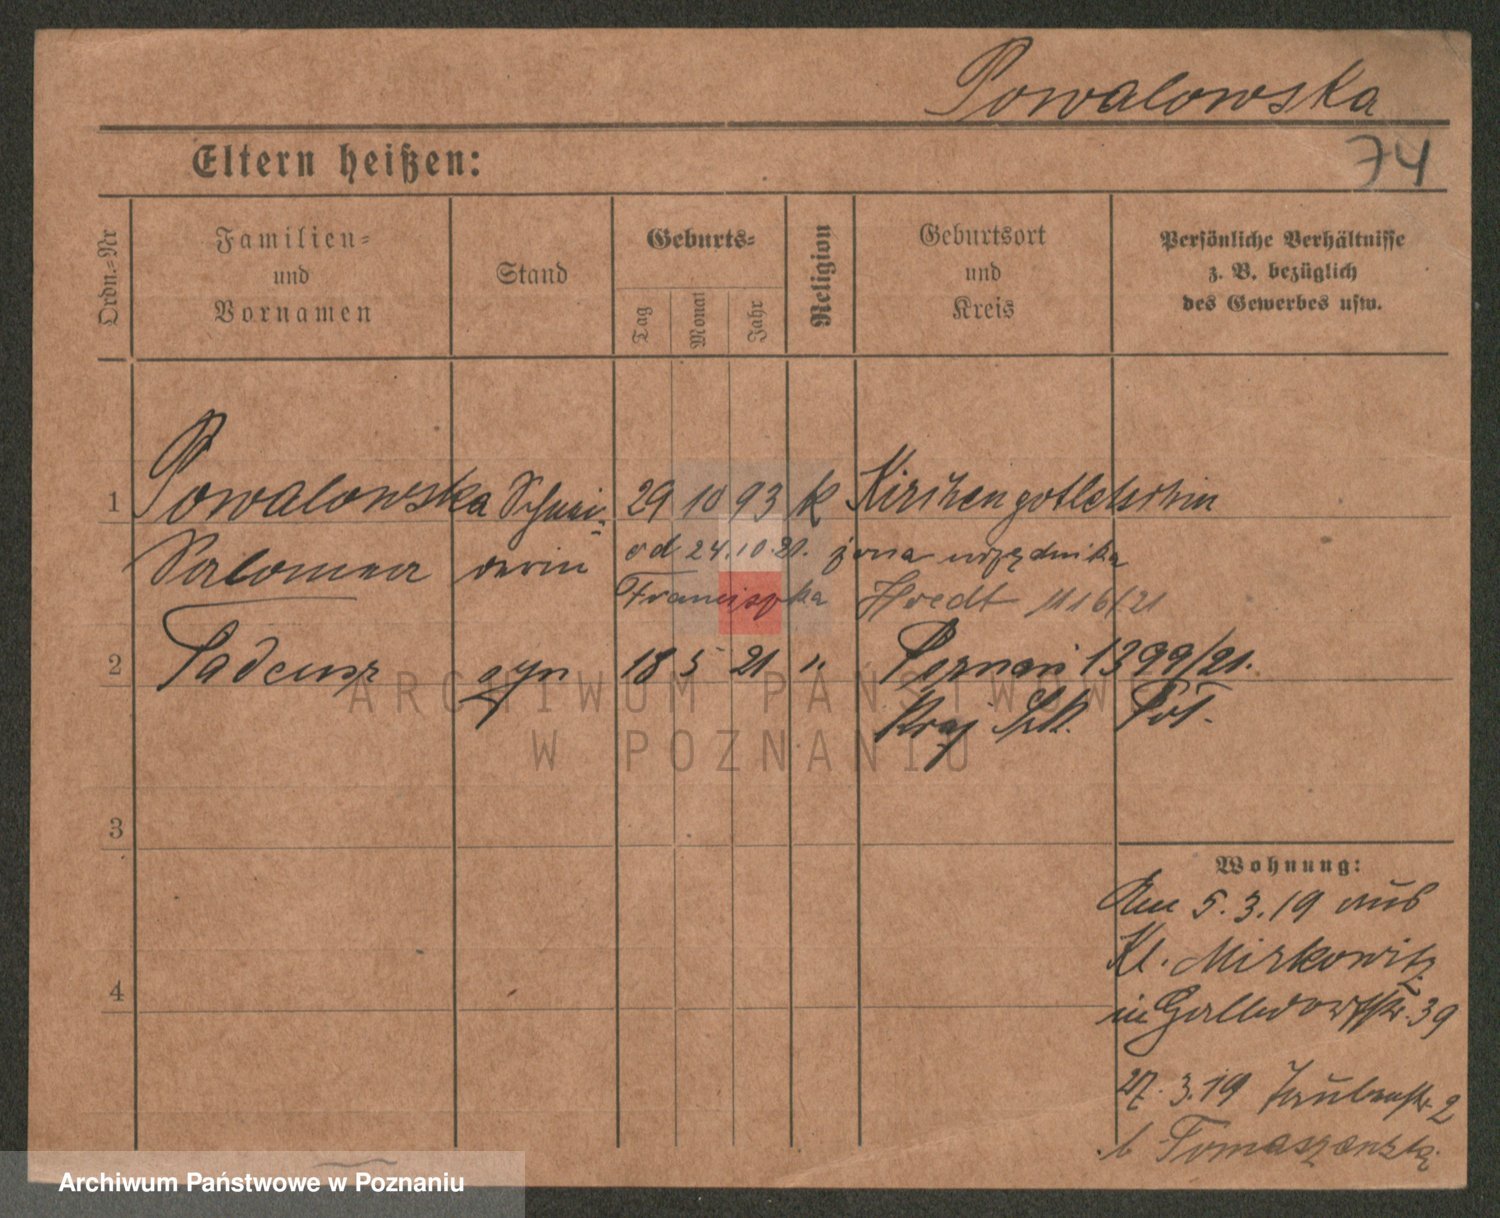 Powalowska
Eltern heißen:
74
Ordn.-Nr
Familien-
und
Vornamen
Stand
Geburts-
Tag
Monat
Jahr
Religion
Geburtsort
und
Kreis
Persönliche Verhältnisse
z. B. bezüglich
des Gewerbes usw.
1 Powalowska Schnei- 29 10 93 k Kirchen
Salomea derin od 24.10.21. żona urzędnika
Franciszka Hredt 1116/21
2 Tadeusz syn 18 5 21 ". Poznań 1399/21.
Kraj
ARCHIWUM PAŃSTWOWE
W POZNANIU
3
Wohnung:
Am 5.3.19 aus
Kl. Mirkowitz
4
in Halldorfstr. 39
27.3.19 Taubenstr. 2
b Tomaszewską
Archiwum Państwowe w Poznaniu